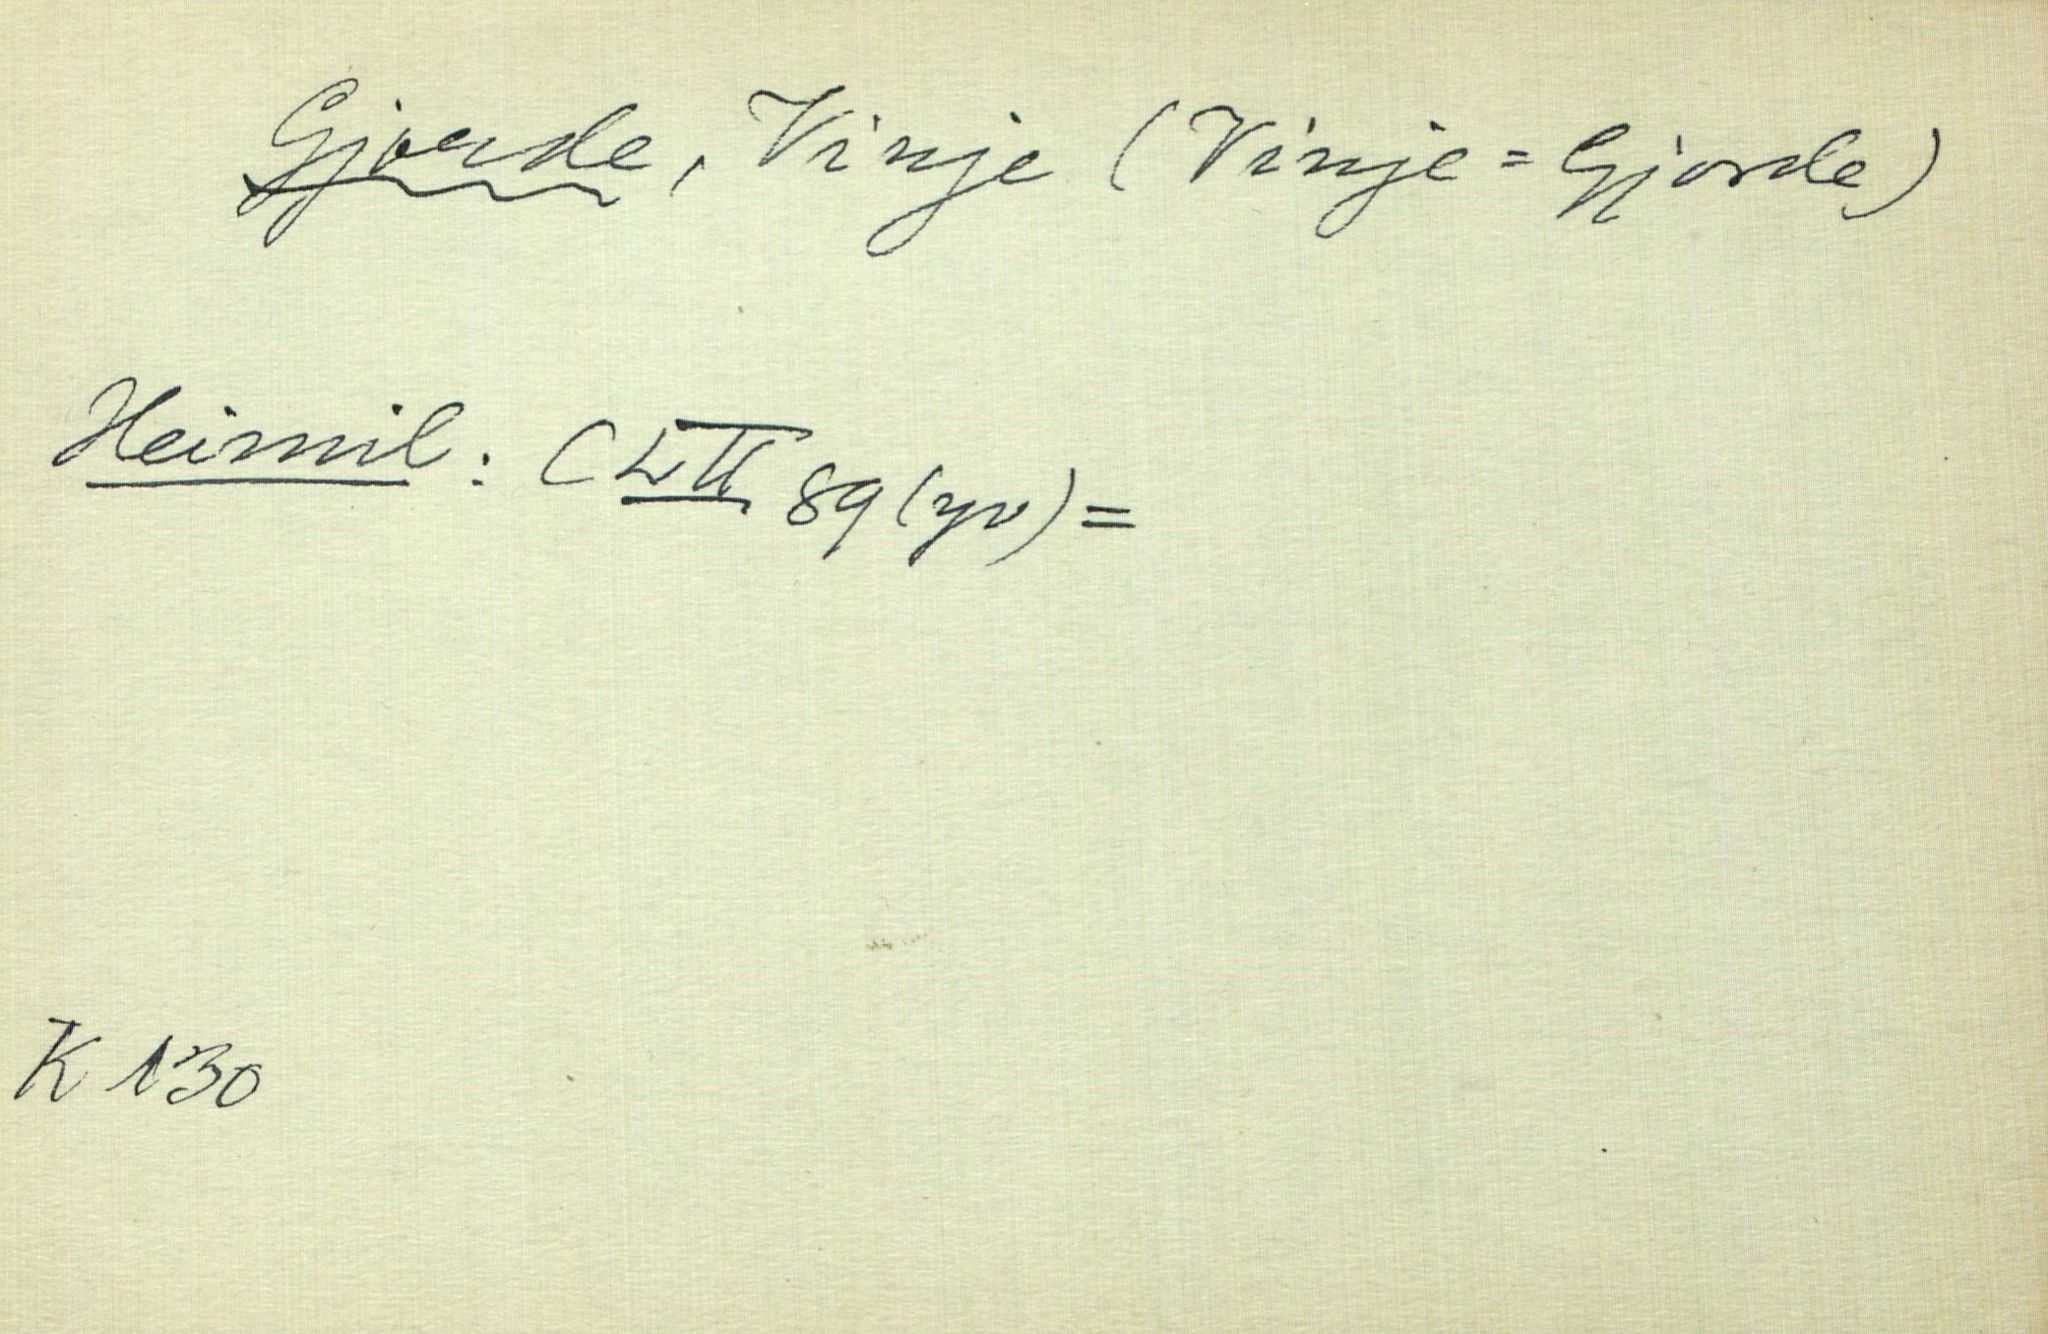 Gjorde, Vinje (Vinje=Gjorde)
Heimil: CLII 89 (yv)=
K 130